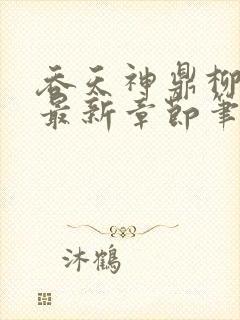 吞天神鼎柳
最新章节笔
沐鹤